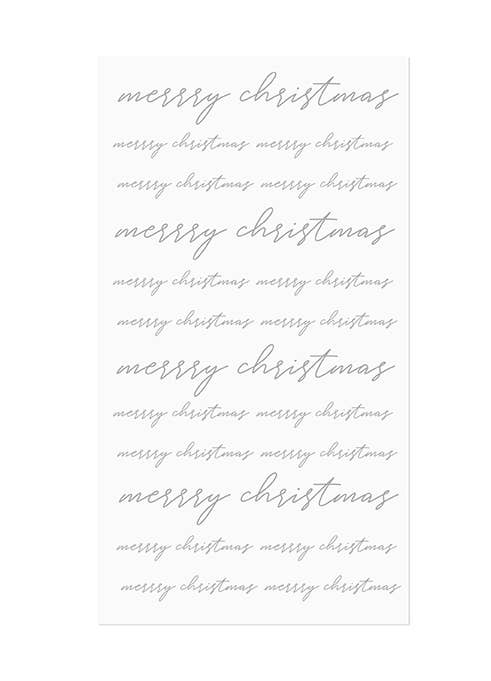 merrry christmas
merrry christmas merrry christmas
merrry christmas merrry christmas
merrry christmas
merrry christmas merrry christmas
merrry christmas merrry christmas
merrry christmas
merrry christmas merrry christmas
merrry christmas merrry christmas
merrry christmas
merrry christmas merrry christmas
merrry christmas merrry christmas